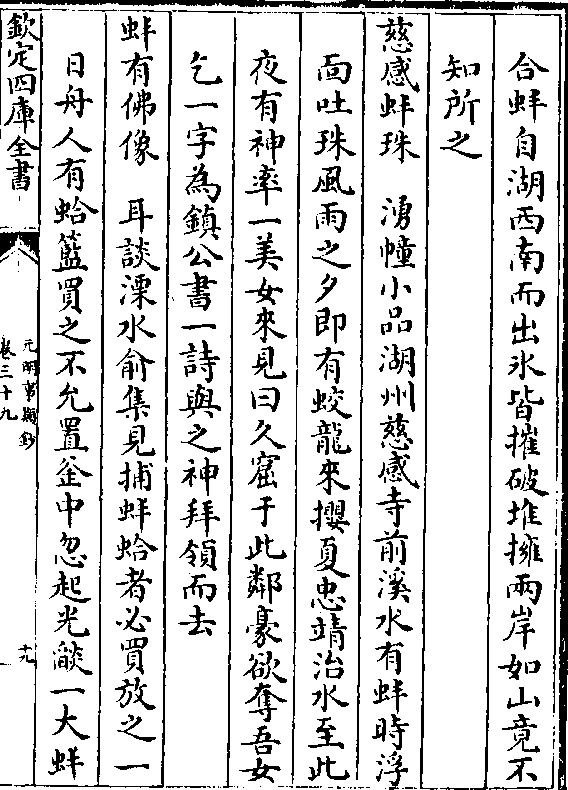 合蚌自湖西南而出氷皆摧破堆擁兩岸如山竟不
知所之
慈感蚌珠　湧幢小品湖州慈感寺前溪水有蚌時浮
面吐珠風雨之夕即有蛟龍來攖夏忠靖治水至此
夜有神率一美女來見曰久窟于此鄰豪欲奪吾女
乞一字為鎮公書一詩與之神拜領而去
蚌有佛像　耳談溧水俞集見捕蚌蛤者必買放之一
日舟人有蛤籃買之不允置釜中忽起光燄一大蚌
欽定四庫全書
元明事類鈔
卷三十九
十九